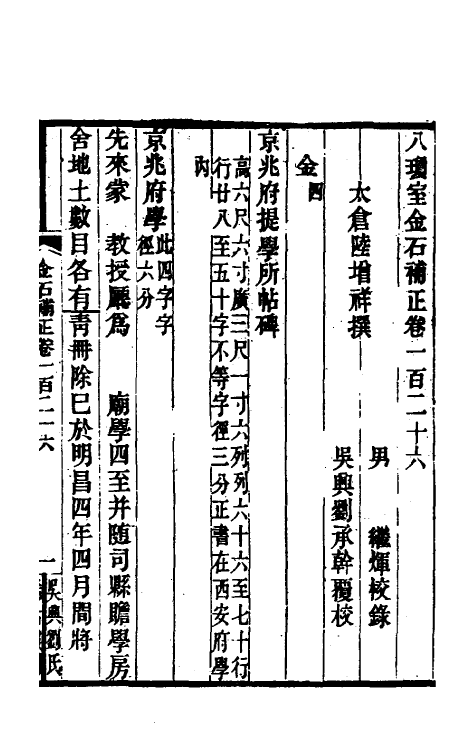 八瓊室金石補正卷一百二十六
太倉陸增祥撰
男　繼煇校錄
吳興劉承幹覆校
金四
京兆府提學所帖碑
高六尺六寸廣三尺一寸六列列六十六至七十行
行廿八至五十字不等字徑三分正書在西安府學
內
京兆府學此四字字徑六分
先來蒙　教授廳爲　廟學四至并隨司縣贍學房
舍地土數目各有靑冊除已於明昌四年四月間將
金石補正卷一百二十六
一
吳興劉氏